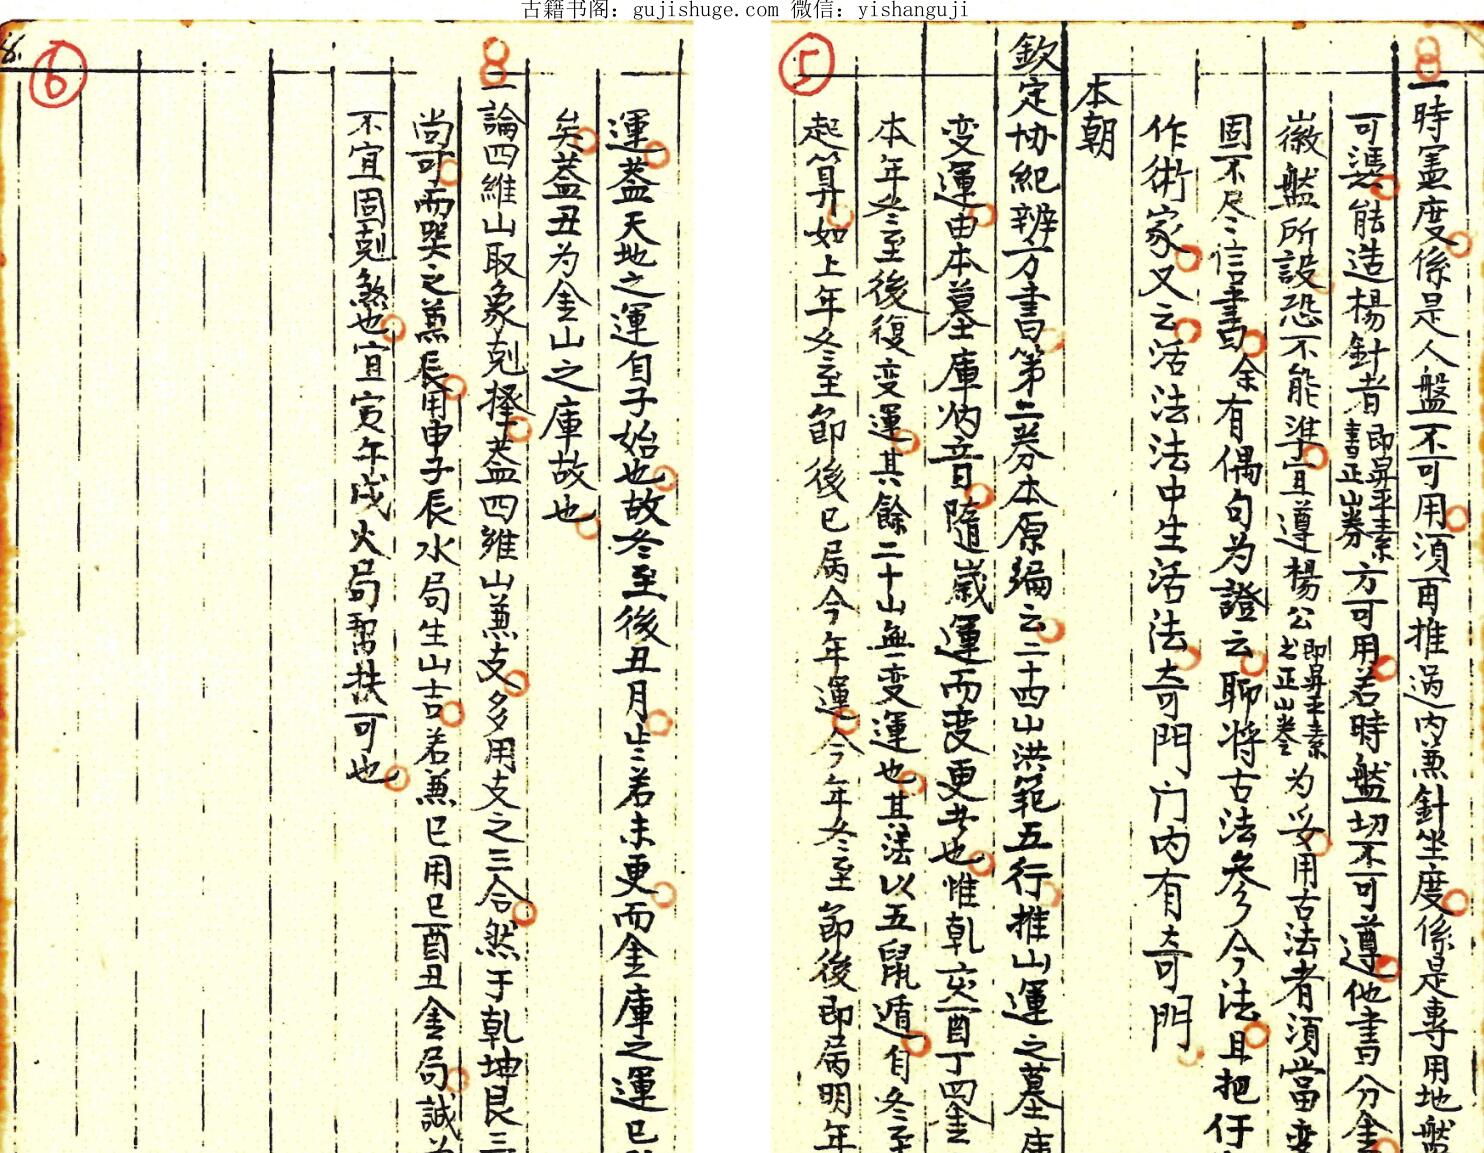 古籍书阁：gujishuge.com 微信：yishanguji
⑤
一時憲度係是人盤不可用須再推過內兼針坐度係是專用地盤
可憑能造楊針者即昇平素書正山券方可用若時盤切不可遵他書分金
徽盤所設恐不能準宜遵楊公即昇平素之正山券为妥用古法者須當变
固不尽信書余有偶句为證云聊將古法參今法且把仔
作術家又云活法法中生活法奇門门内有奇門
本朝
欽定协紀辨方書第二券本原编云二十四山洪範五行推山運之墓庫
变運由本墓庫納音隨嵗運而變更者也惟乹亥酉丁四金
本年冬至後復变運其餘二十山無变運也其法以五鼠遁自冬至
起算如上年冬至節後已屬今年運今年冬至節後即屬明年
⑥
8.
運葢天地之運自子始也故冬至後丑月山若未更而金庫之運已
矣葢丑为金山之庫故也
一論四維山取象剋擇葢四維山兼支多用支之三合然于乹坤艮三
尚可而巽之兼辰用申子辰水局生山吉若兼巳用巳酉丑金局誠为
不宜固剋煞也宜寅午戌火局幇扶可也